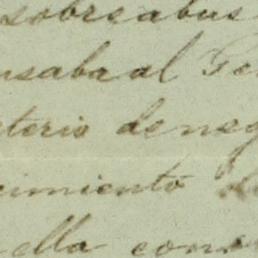 sobre abus
usaba al Ge
terio de neg
cimiento
ella cons